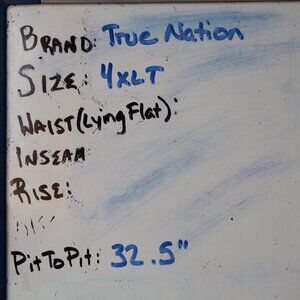 BRAND: True Nation
SIZE: 4XLT
WAIST(Lying Flat):
INSEAM
RISE:
PitToPit: 32.5"